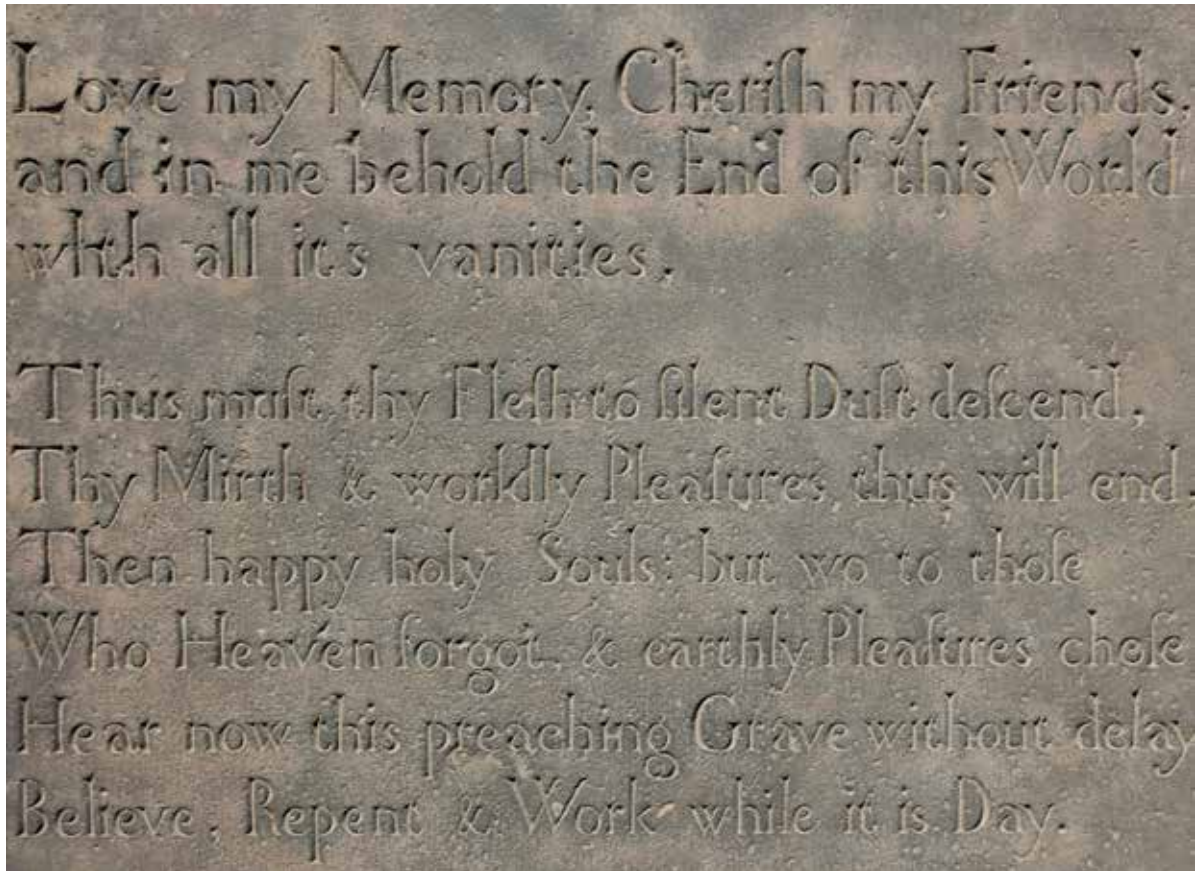 Love my Memory, Cheriſh my Friends,
and in me behold the End of this World
with all it's vanities.
Thus muſt thy Fleſh to ſilent Duſt deſcend,
Thy Mirth & worldly Pleaſures thus will end,
Then happy holy Souls: but wo to thoſe
Who Heaven forgot, & earthly Pleaſures choſe
Hear now this preaching Grave without delay
Believe, Repent & Work while it is Day.